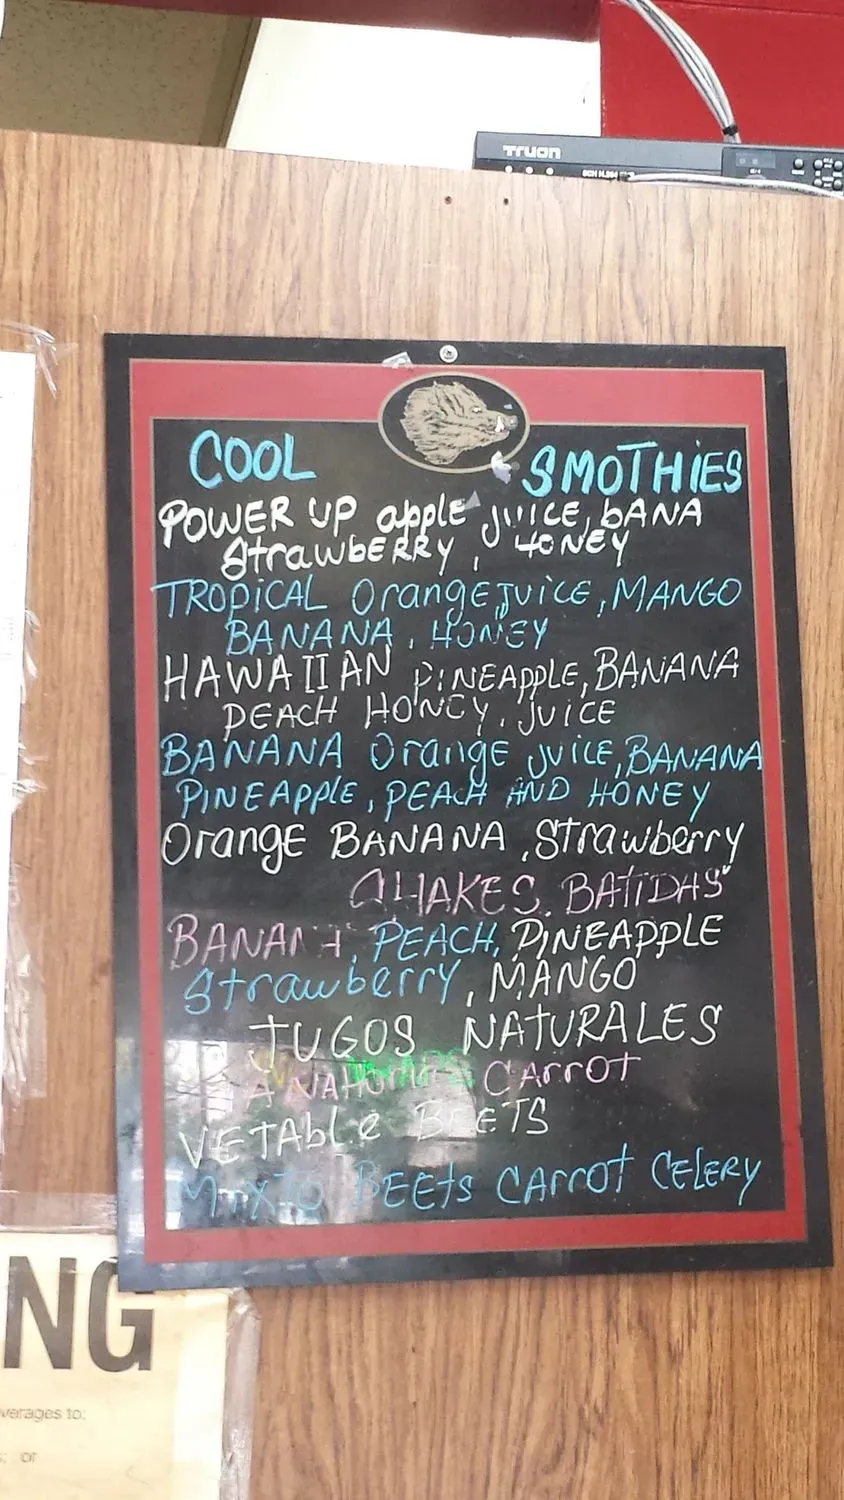 TRUON
COOL SMOTHIES
POWER UP apple JUICE, bANA
StrawbERRY, HONEY
TROPICAL OrangE JUICE, MANGO
BANANA, HONEY
HAWAIIAN PINEAPPLE, BANANA
PEACH HONEY, JUICE
BANANA OrangE JUICE, BANANA
PINEAPPlE, PEACH AND HONEY
OrangE BANANA, Strawberry
SHAKES. BATIDAS
BANANA, PEACH, PINEAPPLE
Strawberry, MANGO
JUGOS NATURALES
CArrot
VETAblE BEETS
MIXTO BEEts CArrot CELERY
NG
verages to:
or